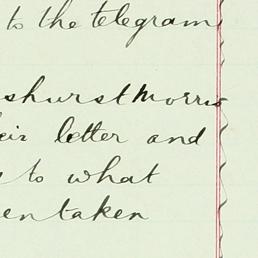 to the telegram
shurst Morris
eir letter and
to what
en taken